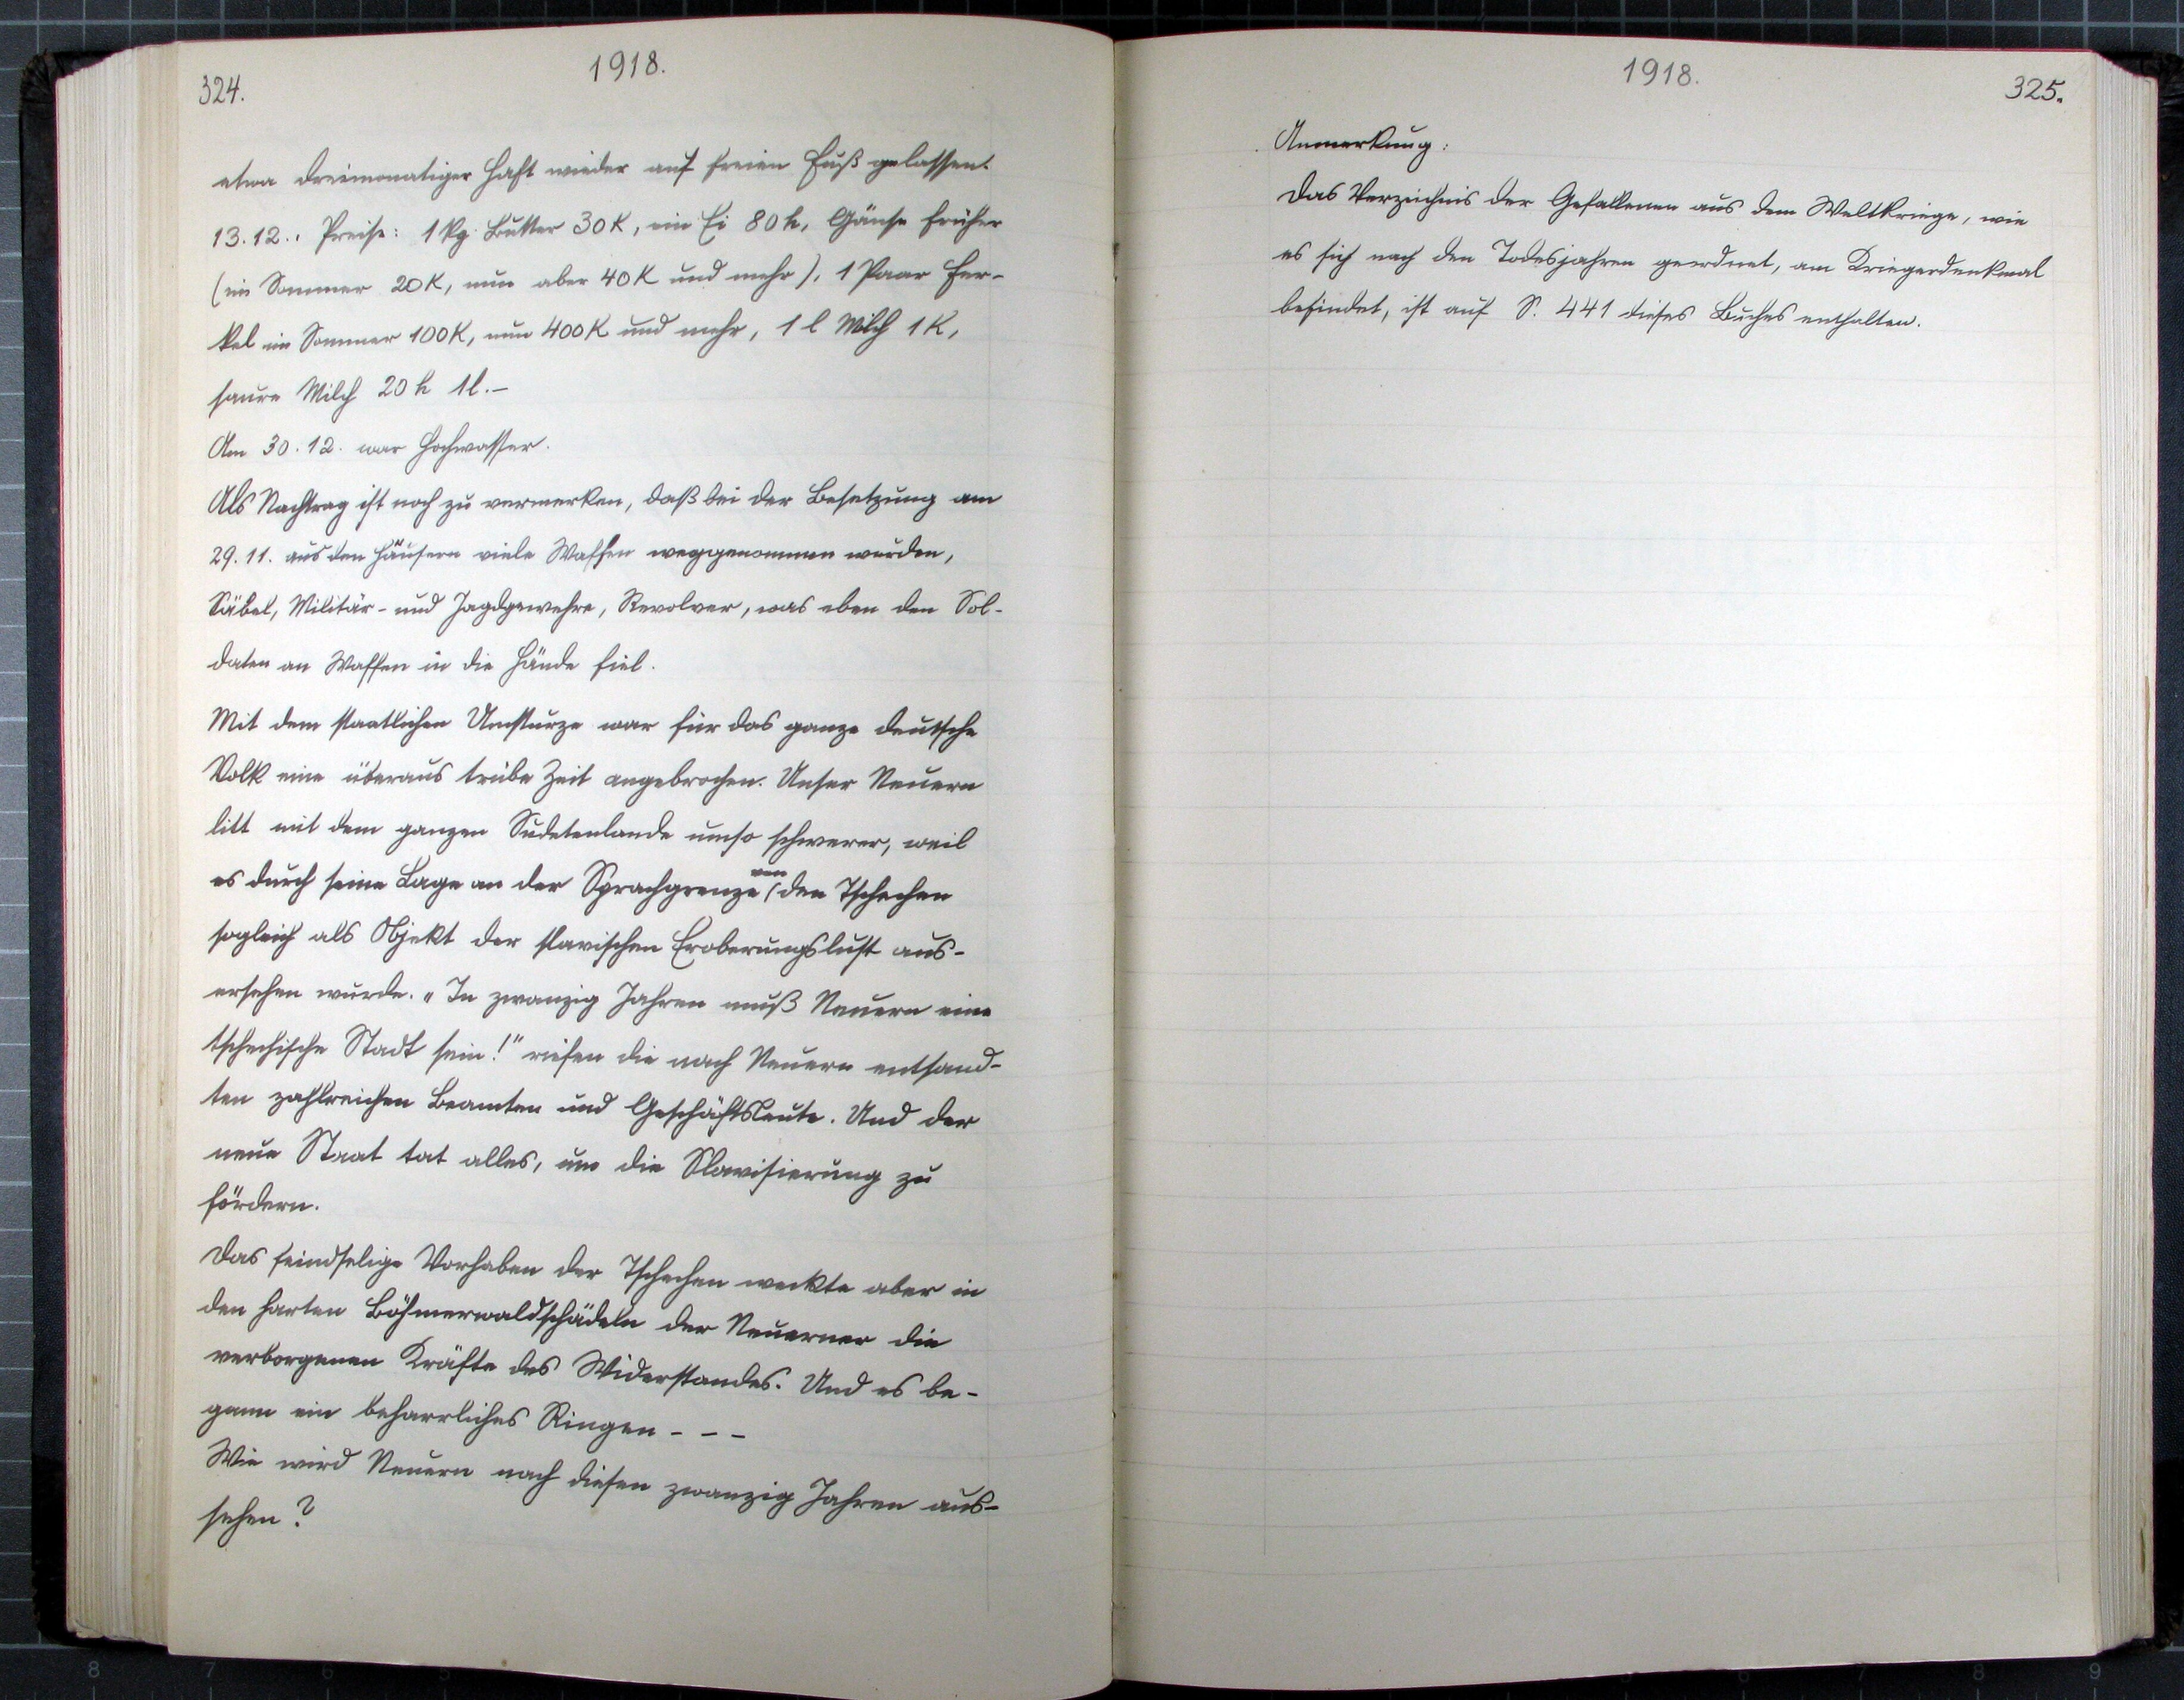 324.
1918.
etwa dreimonatiger Haft wieder auf freien Fuß gelassen.
13.12.. Preise: 1 kg. Butter 30 K, ein Ei 80 h, Gänse früher
(im Sommer 20 K, nun aber 40 K und mehr), 1 Paar Fer-
kel im Sommer 100 K, nun 400 K und mehr, 1 l Milch 1 K,
saure Milch 20 h 1 l.-
Am 30.12. war Hochwasser.
Als Nachtrag ist noch zu vermerken, daß bei der Besetzung am
29.11. aus den Häusern viele Waffen weggenommen wurden,
Säbel, Militär- und Jagdgewehre, Revolver, was eben den Sol-
daten an Waffen in die Hände fiel.
Mit dem staatlichen Umsturze war für das ganze deutsche
Volk eine überaus trübe Zeit angebrochen. Unser Neuern
litt mit dem ganzen Sudetenlande umso schwerer, weil
es durch seine Lage an der Sprachgrenze von den Tschechen
sogleich als Objekt der slavischen Eroberungslust aus-
ersehen wurde. „In zwanzig Jahren muß Neuern eine
tschechische Stadt sein!" riefen die nach Neuern entsand-
ten zahlreichen Beamten und Geschäftsleute. Und der
neue Staat tat alles, um die Slavisierung zu
fördern.
Das feindselige Vorhaben der Tschechen weckte aber in
den harten Böhmerwaldschädeln der Neuerner die
verborgenen Kräfte des Widerstandes. Und es be-
gann ein beharrliches Ringen - - -
Wie wird Neuern nach diesen zwanzig Jahren aus-
sehen?
1918.
325.
Anmerkung:
Das Verzeichnis der Gefallenen aus dem Weltkriege, wie
es sich nach den Todesjahren geordnet, am Kriegerdenkmal
befindet, ist auf S. 441 dieses Buches enthalten.
8 7 6 5
6 7 8 9